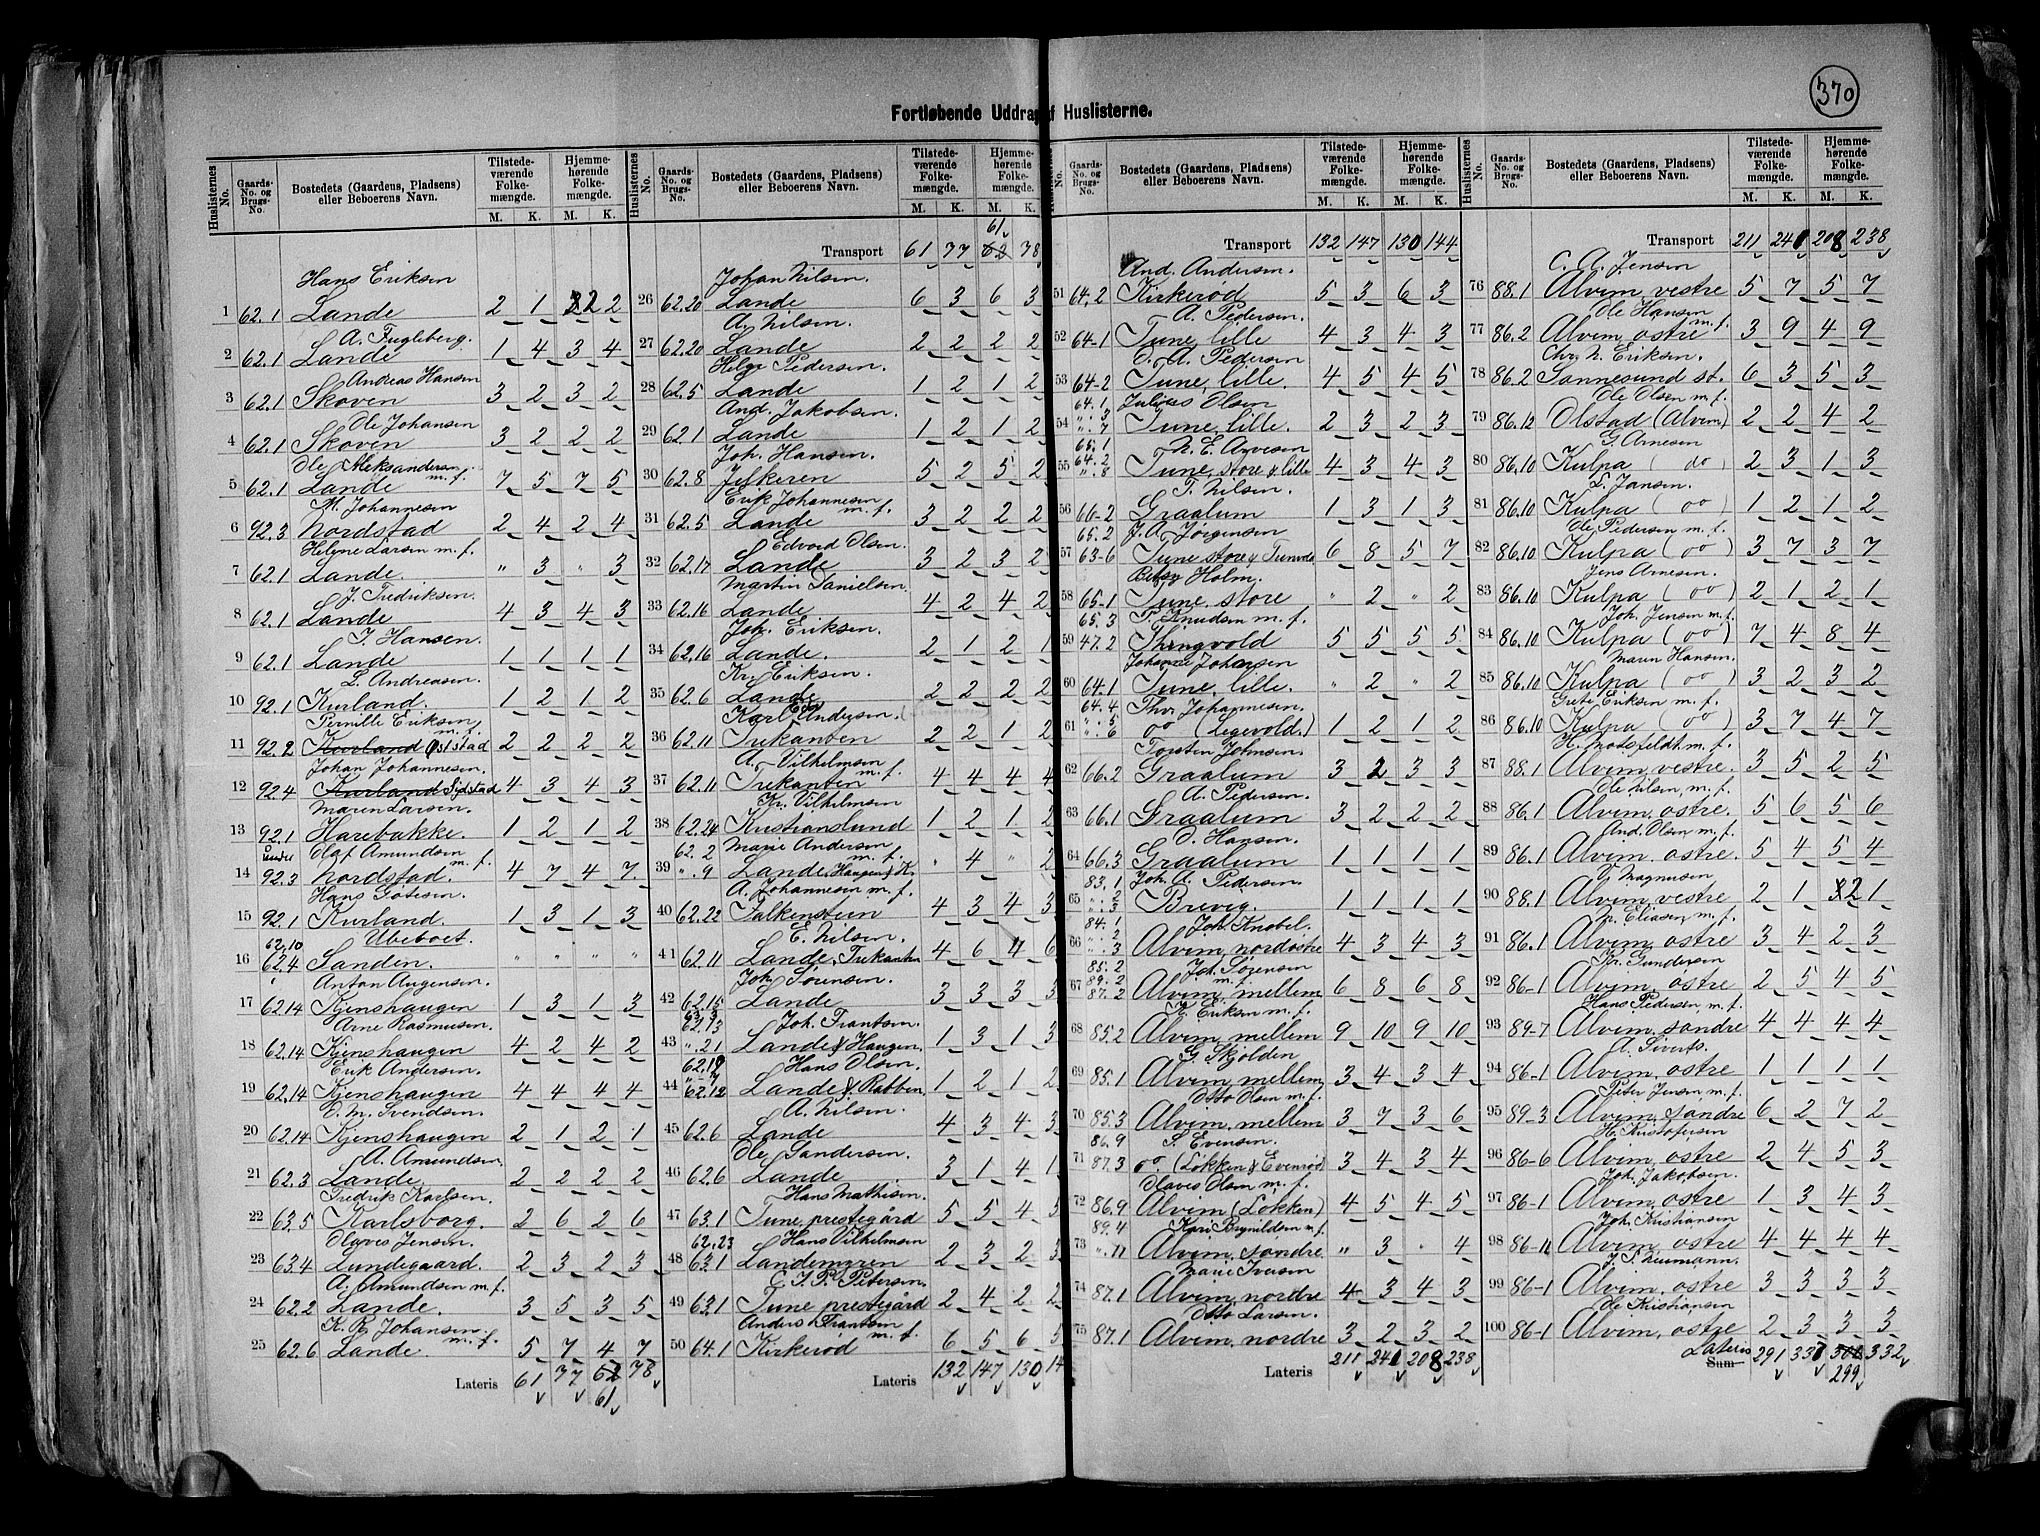 370
Fortløbende Uddrag af Huslisterne.
Huslisternes No. Gaards-No. og Brugs-No. Bostedets (Gaardens, Pladsens) eller Beboerens Navn. Tilstedeværende Folkemængde. M. K. Hjemmehørende Folkemængde. M. K.
Hans Eriksen
1 62.1 Lande 2 1 2 2
A. Fugleberg.
2 62.1 Lande 1 4 3 4
Andreas Hansen
3 62.1 Skoven 3 2 3 2
Ole Johansen
4 62.1 Skoven 3 2 2 2
Ole Aleksandersen m. f.
5 62.1 Lande 7 5 7 5
M. Johannesen
6 92.3 Nordstad 2 4 2 4
Helene Larsen m. f.
7 62.1 Lande. " 3 " 3
J. Fredriksen.
8 62.1 Lande 4 3 4 3
J. Hansen.
9 62.1 Lande 1 1 1 1
L. Andreasen.
10 92.1 Kurland. 1 2 1 2
Pernille Eriksen m. f.
11 92.2 Kurland Øststad 2 2 2 2
Johan Johannesen.
12 92.4 Kurland Sydstad 4 3 4 3
Maren Larsen.
13 92.1 Harebakke. 1 2 1 2
Olaf Amundsen m. f.
14 under 92.3 Nordstad. 4 7 4 7
Hans Gotesen.
15 92.1 Kurland. 1 3 1 3
Ubeboet.
16 62.10 62.4 Sanden. " " " "
Anton Augensen.
17 62.14 Kjenshaugen 1 3 1 3
Arne Rasmusen.
18 62.14 Kjenshaugen 4 2 4 2
Erik Andersen.
19 62.14 Kjenshaugen 4 4 4 4
O. M. Svendsen.
20 62.14 Kjenshaugen 2 1 2 1
A. Amundsen.
21 62.3 Lande. 2 2 2 2
Fredrik Karlsen.
22 63.5 Karlsborg. 2 6 2 6
Olaves Jensen.
23 63.4 Lundegaard. 2 3 2 3
A. Amundsen m. f.
24 62.2 Lande. 3 5 3 5
K. R. Johansen. m. f.
25 62.6 Lande 5 7 4 7
Lateris 61 77 62 78
61
Huslisternes No. Gaards-No. og Brugs-No. Bostedets (Gaardens, Pladsens) eller Beboerens Navn. Tilstedeværende Folkemængde. M. K. Hjemmehørende Folkemængde. M. K.
61
Transport 61 77 62 78
Johan Nilsen.
26 62.20 Lande 6 3 6 3
A. Nilsen.
27 62.20 Lande 2 2 2 2
Helge Pedersen.
28 62.5 Lande 1 2 1 2
And. Jakobsen.
29 62.1 Lande 1 2 1 2
Joh. Hansen.
30 62.8 Jelkeren 5 2 5 2
Erik Johannesen m. f.
31 62.5 Lande 3 2 2 2
Edvard Olsen.
32 62.17 Lande 3 2 3 2
Martin Danielsen
33 62.16 Lande 4 2 4 2
Joh. Eriksen.
34 62.16 Lande. 2 1 2 1
Kr. Eriksen.
35 62.6 Lande 2 2 2 2
Karl Andersen.
36 62.11 Trekanten 2 2 1 2
A. Vilhelmsen m. f.
37 62.11 Trekanten 4 4 4 4
Kr. Vilhelmsen
38 62.24 Kristianslund 1 2 1 2
Marie Andersen m. f.
39 62.2 ".9 Lande, Haugen & K. " 4 " 2
A. Johannesen m. f.
40 62.22 Falkenstein 4 3 4 3
E. Nilsen.
41 62.11 Lande, Trekanten 4 6 4 6
Joh. Sørensen.
42 62.15 Lande 3 3 3 3
Joh. Frantsen.
43 62.13 ".21 Lande & Haugen. 1 3 1 3
Hans Olsen.
44 62.12 Lande & Rabben 1 2 1 2
A. Nilsen.
45 62.6 Lande 4 3 4 3
Ole Sandersen.
46 62.6 Lande. 3 1 4 1
Hans Mathisen.
47 63.1 Tune prestegård 5 5 4 5
Hans Vilhelmsen
48 62.23 63.1 Landemyren 2 3 2 3
C. J. P. Petersen.
49 63.1 Tune prestegård 2 4 2 2
Anders Frantsen m. f.
50 64.1 Kirkerød 6 5 6 5
Lateris 132 147 130 14
Gaards-No. og Brugs-No. Bostedets (Gaardens, Pladsens) eller Beboerens Navn. Tilstedeværende Folkemængde. M. K. Hjemmehørende Folkemængde. M. K.
Transport 132 147 130 144
And. Andersen.
51 64.2 Kirkerød 5 3 6 3
A. Pedersen.
52 64-1 Tune, lille 4 3 4 3
O. A. Pedersen
53 64-2 Tune, lille. 4 5 4 5
Julius Olsen
54 64.1 ".3 ".7 Tune, lille. 2 3 2 3
N. E. Arvesen
55 65.1 64.2 ".8 Tune, store & lille 4 3 4 3
T. Nilsen.
56 66-2 Graalum 1 3 1 3
J. A. Jørgensen
57 65.2 63-6 Tune store & Tunvold 6 8 5 7
Betsy Holm.
58 65-1 Tune, store " 2 " 2
T. Knudsen m. f.
59 65.3 47.2 Thingvold 5 5 5 5
Johanne Johansen
60 64-1 Tune, lille. " 2 " 2
Thv. Johannesen.
61 64.4 ".5 ".6 oo (Legevold.) 1 2 1 2
Torsten Johnsen.
62 66.2 Graalum 3 2 3 3
A. Pedersen.
63 66.1 Graalum 3 2 2 2
O. Hansen.
64 66.3 Graalum 1 1 1 1
Joh. A. Pedersen.
65 83.1 ".2 ".3 Brevig. 1 1 1 1
Joh. Knobel.
66 84.1 ".2 ".3 Alvim, nordøstre 4 3 4 3
Joh. Sørensen m. f.
67 85.2 89.2 87.2 Alvim, mellem 6 8 6 8
K. Eriksen m. f.
68 85.2 Alvim, mellem 9 10 9 10
G. Skjolden
69 85.1 Alvim, mellem 3 4 3 4
Otto Olsen m. f.
70 85.3 Alvim, mellem 3 7 3 6
S. Evensen.
71 86.9 87.3 oo. (Løkken & Evenrød) 3 4 3 4
Olaves Olsen m. f.
72 86.9 Alvim (Løkken) 4 5 4 5
Kari Brynildsen m. f.
73 89.4 ".11 Alvim, søndre " 3 " 4
Marie Iversen
74 87.1 Alvim, nordre 4 3 4 3
Otto Larsen.
75 87.1 Alvim, nordre 3 2 3 2
Lateris 211 240 208 238
Huslisternes No. Gaards-No. og Brugs-No. Bostedets (Gaardens, Pladsens) eller Beboerens Navn. Tilstedeværende Folkemængde. M. K. Hjemmehørende Folkemængde. M. K.
Transport 211 240 208 238
C. A. Jensen
76 88.1 Alvim, vestre 5 7 5 7
Ole Hansen m. f.
77 86.2 Alvim, østre 3 9 4 9
Chr. N. Eriksen.
78 86.2 Sannesund st. 6 3 5 3
Ole Olsen m. f.
79 86.12 Olstad (Alvim) 2 2 4 2
G. Arnesen
80 86.10 Kulpa (do) 2 3 1 3
L. Jansen.
81 86.10 Kulpa (oo) 1 2 1 2
Ole Pedersen m. f.
82 86.10 Kulpa (oo) 3 7 3 7
Jens Arnesen.
83 86.10 Kulpa (oo) 2 1 2 1
Joh. Jensen m. f.
84 86.10 Kulpa (oo) 7 4 8 4
Maren Hansen.
85 86.10 Kulpa (oo) 3 2 3 2
Grete Eriksen m. f.
86 86.10 Kulpa (oo) 3 7 4 7
H. Motsfeldt m. f.
87 88.1 Alvim, vestre. 3 5 2 5
Ole Nilsen, m. f.
88 86.1 Alvim, østre. 5 6 5 6
And. Olsen m. f.
89 86.1 Alvim, østre. 5 4 5 4
V. Magnusen
90 88.1 Alvim, vestre 2 1 2 1
N. Eliasen, m. f.
91 86.1 Alvim, østre. 3 4 2 3
Kr. Gundersen
92 86-1 Alvim, østre 2 5 4 5
Hans Pedersen, m. f.
93 89-7 Alvim, søndre 4 4 4 4
A. Siverts.
94 86-1 Alvim, østre 1 1 1 1
Peter Jensen m. f.
95 89-3 Alvim, søndre 6 2 7 2
H. Kristofersen
96 86-6 Alvim, østre 2 4 5 3
Joh. Jakobsen.
97 86-1 Alvim, østre 1 3 4 3
Joh. Kristiansen
98 86-11 Alvim, østre 4 4 4 4
J. T. Neumann.
99 86-1 Alvim, østre 3 3 3 3
Ole Kristiansen
100 86-1 Alvim, østre 2 3 3 3
Lateris
Sum 291 331 300 332
299